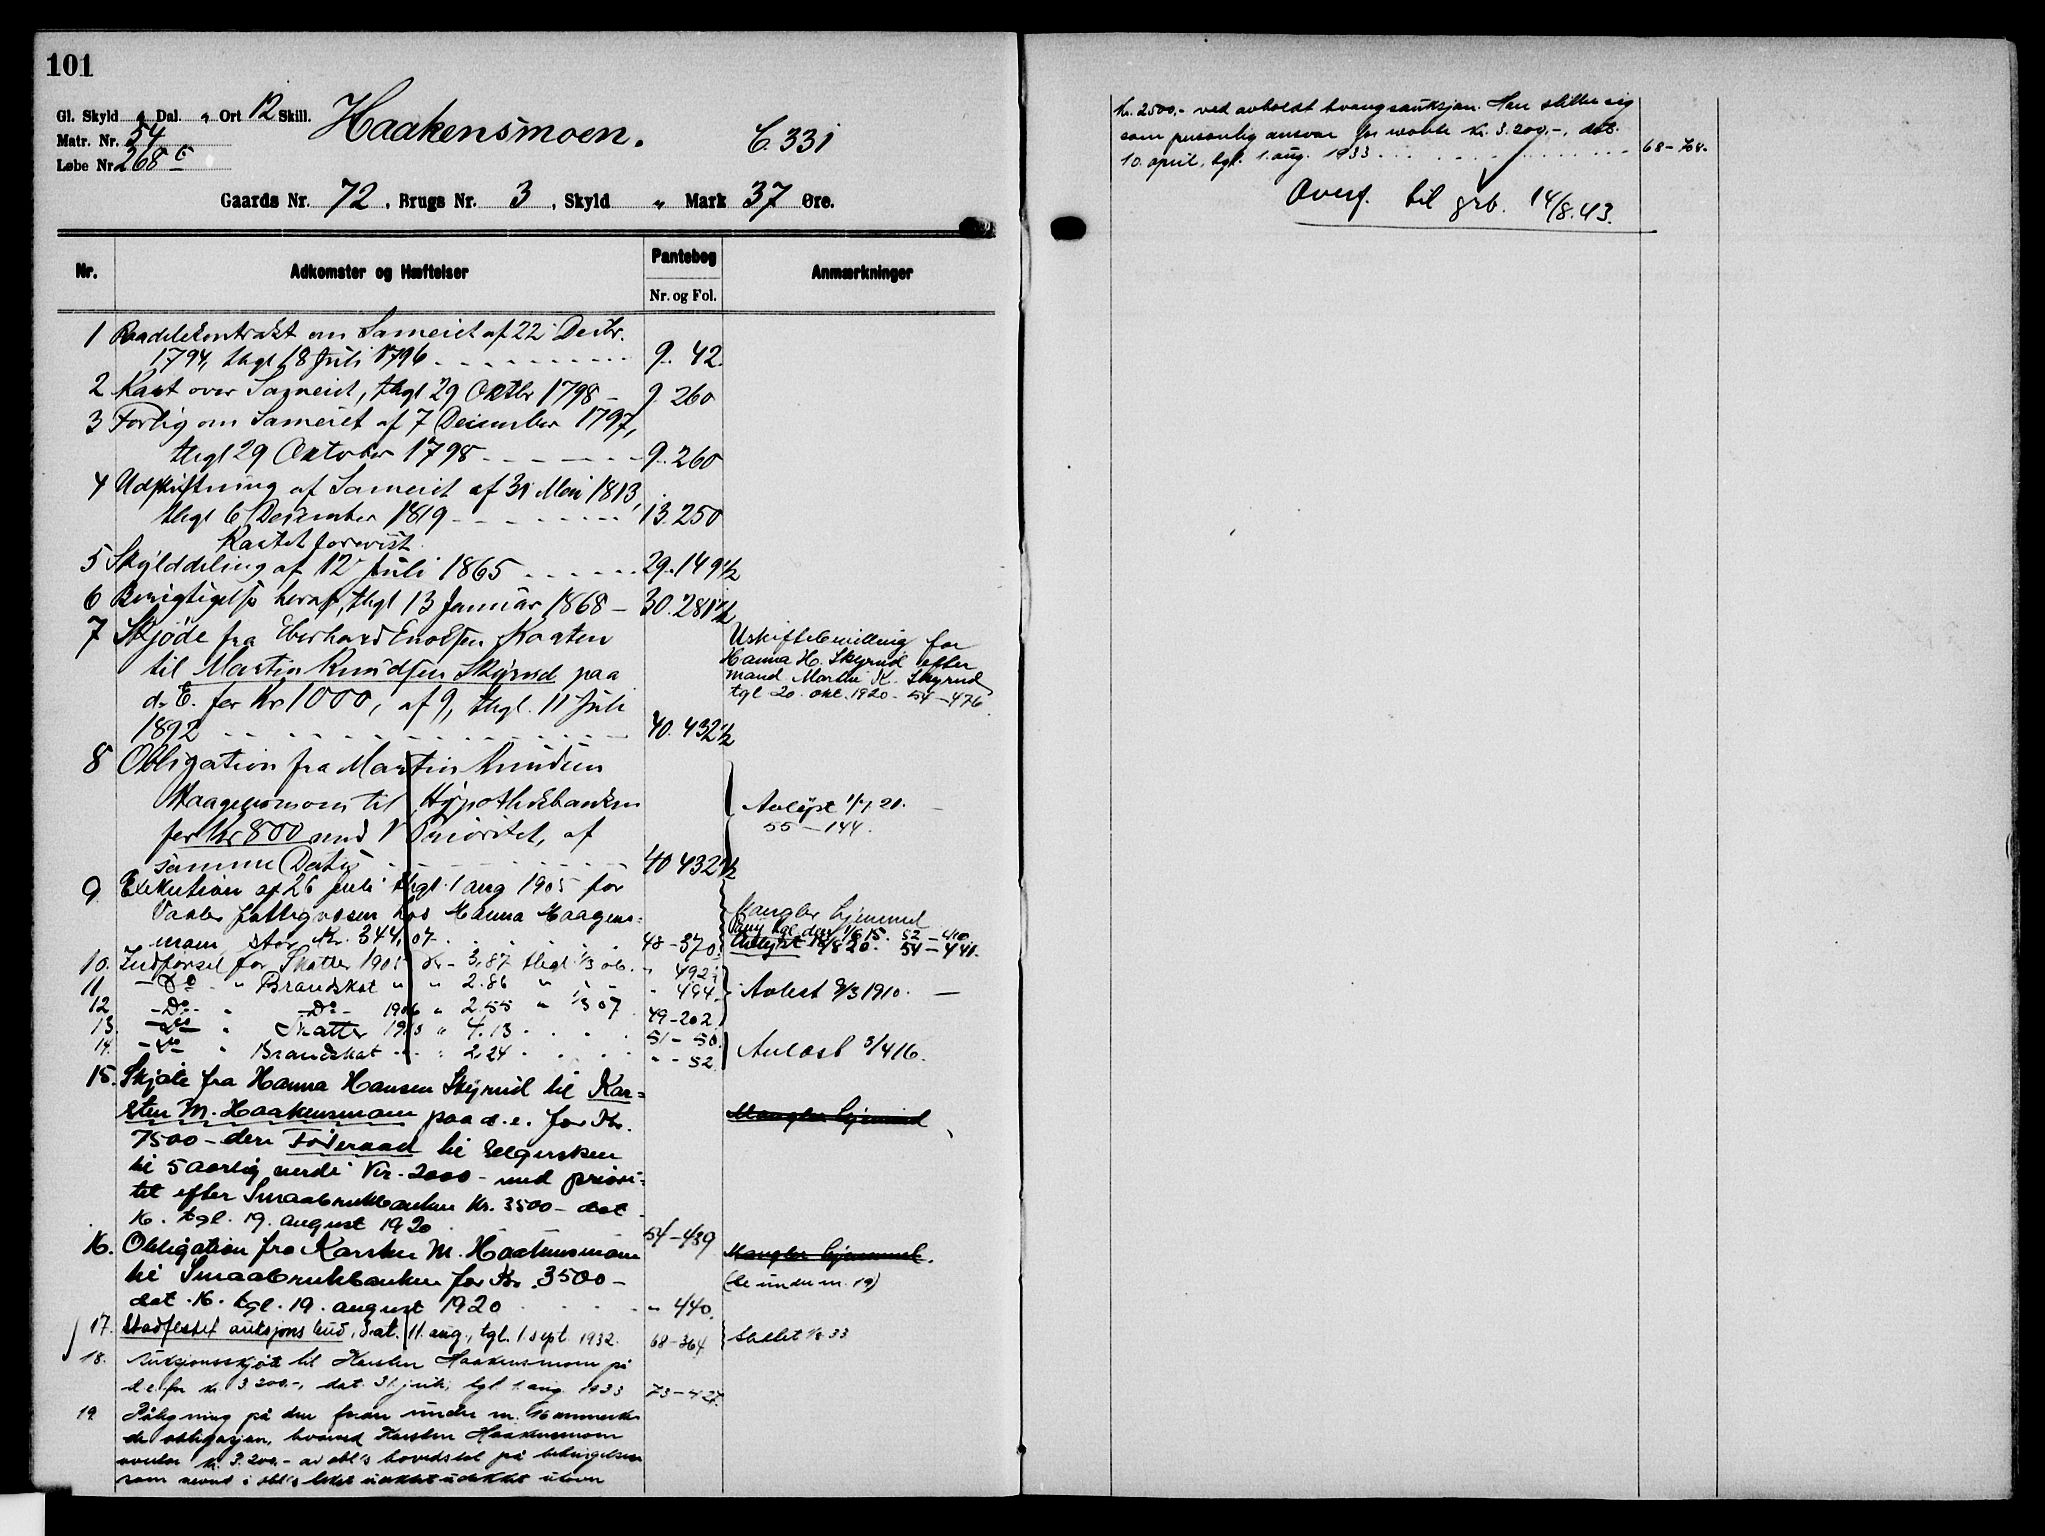 101
Gl. Skyld „ Dal „ Ort 12 Skill. Haakensmoen.
Matr. Nr. 54 C 331
Løbe Nr. 268 c
Gaards Nr. 72, Brugs Nr. 3, Skyld „ Mark 37 Øre.
Nr. Adkomster og Hæftelser Pantebog Nr. og Fol. Anmærkninger
1 Raadelekontrakt om Sameiet af 22 Decbr.
1794, thgl 18 Juli 1796 9. 42.
2 Kart over Sameiet, thgl 29 Oktbr 1798 9 260
3 Forlig om Sameiet af 7 December 1797,
thgl 29 Oktober 1798 9. 260
4 Udskiftning af Sameiet af 31 Mai 1813,
thgl 6 December 1819 13. 250
Kartet forevist
5 Skylddeling af 12 Juli 1865 29. 149½
6 Berigtigelse heraf, thgl 13 Januar 1868 – 30. 281½
7 Skjøde fra Eberhard Enoksen Kaaten
til Martin Knudsen Skyrud paa
d. E. for Kr 1000, af 9, thgl. 11 Juli
1892 40. 432½
Uskiftebevilling for
Hanna H. Skyrud efter
mand Martin K. Skyrud
tgl 20. okt. 1920 - 54 – 476.
8 Obligation fra Martin Knudsen
Haagensmoen til Hypothekbanken
for Kr 800 med 1 Prioritet, af
samme Dato 40 432½
Avlyst 11/1 21. –
55 – 144.
9 Exekution af 26 Juli thgl. 1 aug 1905 for
Vaaler fattigvæsen hos Hanna Haagens=
moen, stor Kr. 344,07. 48 – 370.
Mangler hjemmel
Paany tgl den 1/6 15. 52 – 410
Avlyst 18/8 20. 54 – 441.
10. Indførsel for Skatter 1905 Kr – 3,87 thgl 1/3 06. „ 492.
11 – Do „ Brandskat „ „ 2.86 „ „ „ 494.
12 – Do – „ – Do – 1906 „ 2.55 „ 1/3 07 49 – 202.
Avlest 9/3 1910. –
13. – Do „ Skatter 1910 „ 4.13 51 – 50.
14. – Do „ Brandskat „ 2,24 „ – 52.
Avlest 3/4 16.
15. Skjøte fra Hanna Hansen Skyrud til Kar=
sten M. Haakensmoen paa d. e. for Kr.
7500 – den Føderaad til Selgersken
til 5 aarlig verdi Kr. 2000 – med priori=
tet efter Smaabrukbanken Kr. 3500 – dat
16. tgl. 19. august 1920 54 – 439
Mangler hjemmel
16. Obligation fra Karsten M. Haakensmoen
til Smaabrukbanken for Kr. 3500 –
dat. 16. tgl. 19. august 1920 „ 440.
Mangler hjemmel.
(Se under nr. 19)
17. Stadfestet auksjons bud, dat. 11. aug., tgl. 1. sept. 1932. 68 – 364 Slettet 1/8 33
18. Auksjonsskjøte til Karsten Haakensmoen på
d e. for kr. 3 200.–, dat. 31. juli, tgl 1. aug. 1933 73 – 427.
19 Påtegning på den foran under nr. 16 anmerke
de obligasjon, hvorved Karsten Haakensmoen
overtar kr. 3.200.– av obl's hovedstol på betingelser
som nevnt i obl's utover
kr. 2500.– ved avholdt tvangsauksjon. Han stiller sig
som personlig ansvar for kr. 3.200.–, dat.
10. april, tgl. 1. aug. 1933 68 – 704.
Overf. til grb. 14/8.43.